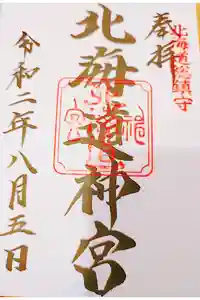 奉拝
北海道総鎮守
北海道神宮
令和二年八月五日